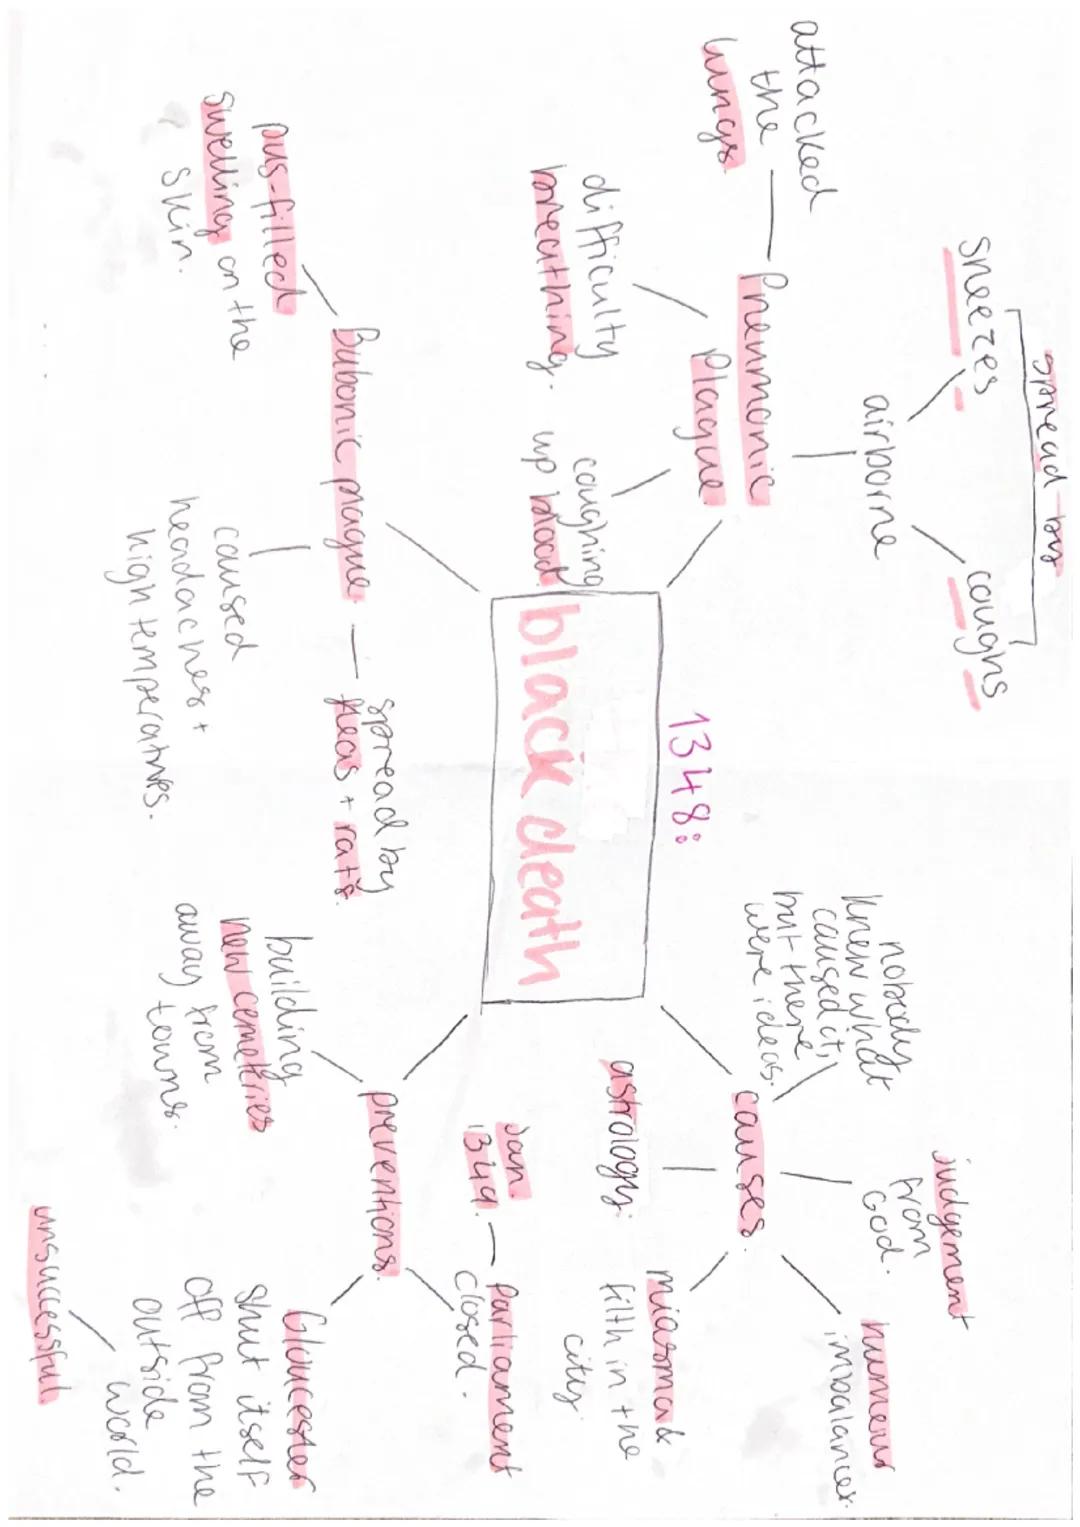 1348:
black death
Pneumonic
Plague
attacked
the
lungs
difficulty
breathing.
coughing
up blood.
airborne
spread by
sneezes
coughs
Bubonic plague.
pus-filled
swelling on the
skin.
caused
headaches +
high temperatures.
spread by
fleas + rats.
causes.
nobody
knew what
caused it,
but there
were ideas.
judgement
from
God.
humour
imbalances.
miasma &
filth in the
city.
astrology.
preventions.
building
new cemeteries
away from
towns.
Jan.
1349.
parliament
closed.
Gloucester
shut itself
off from the
outside
world.
unsuccessful.